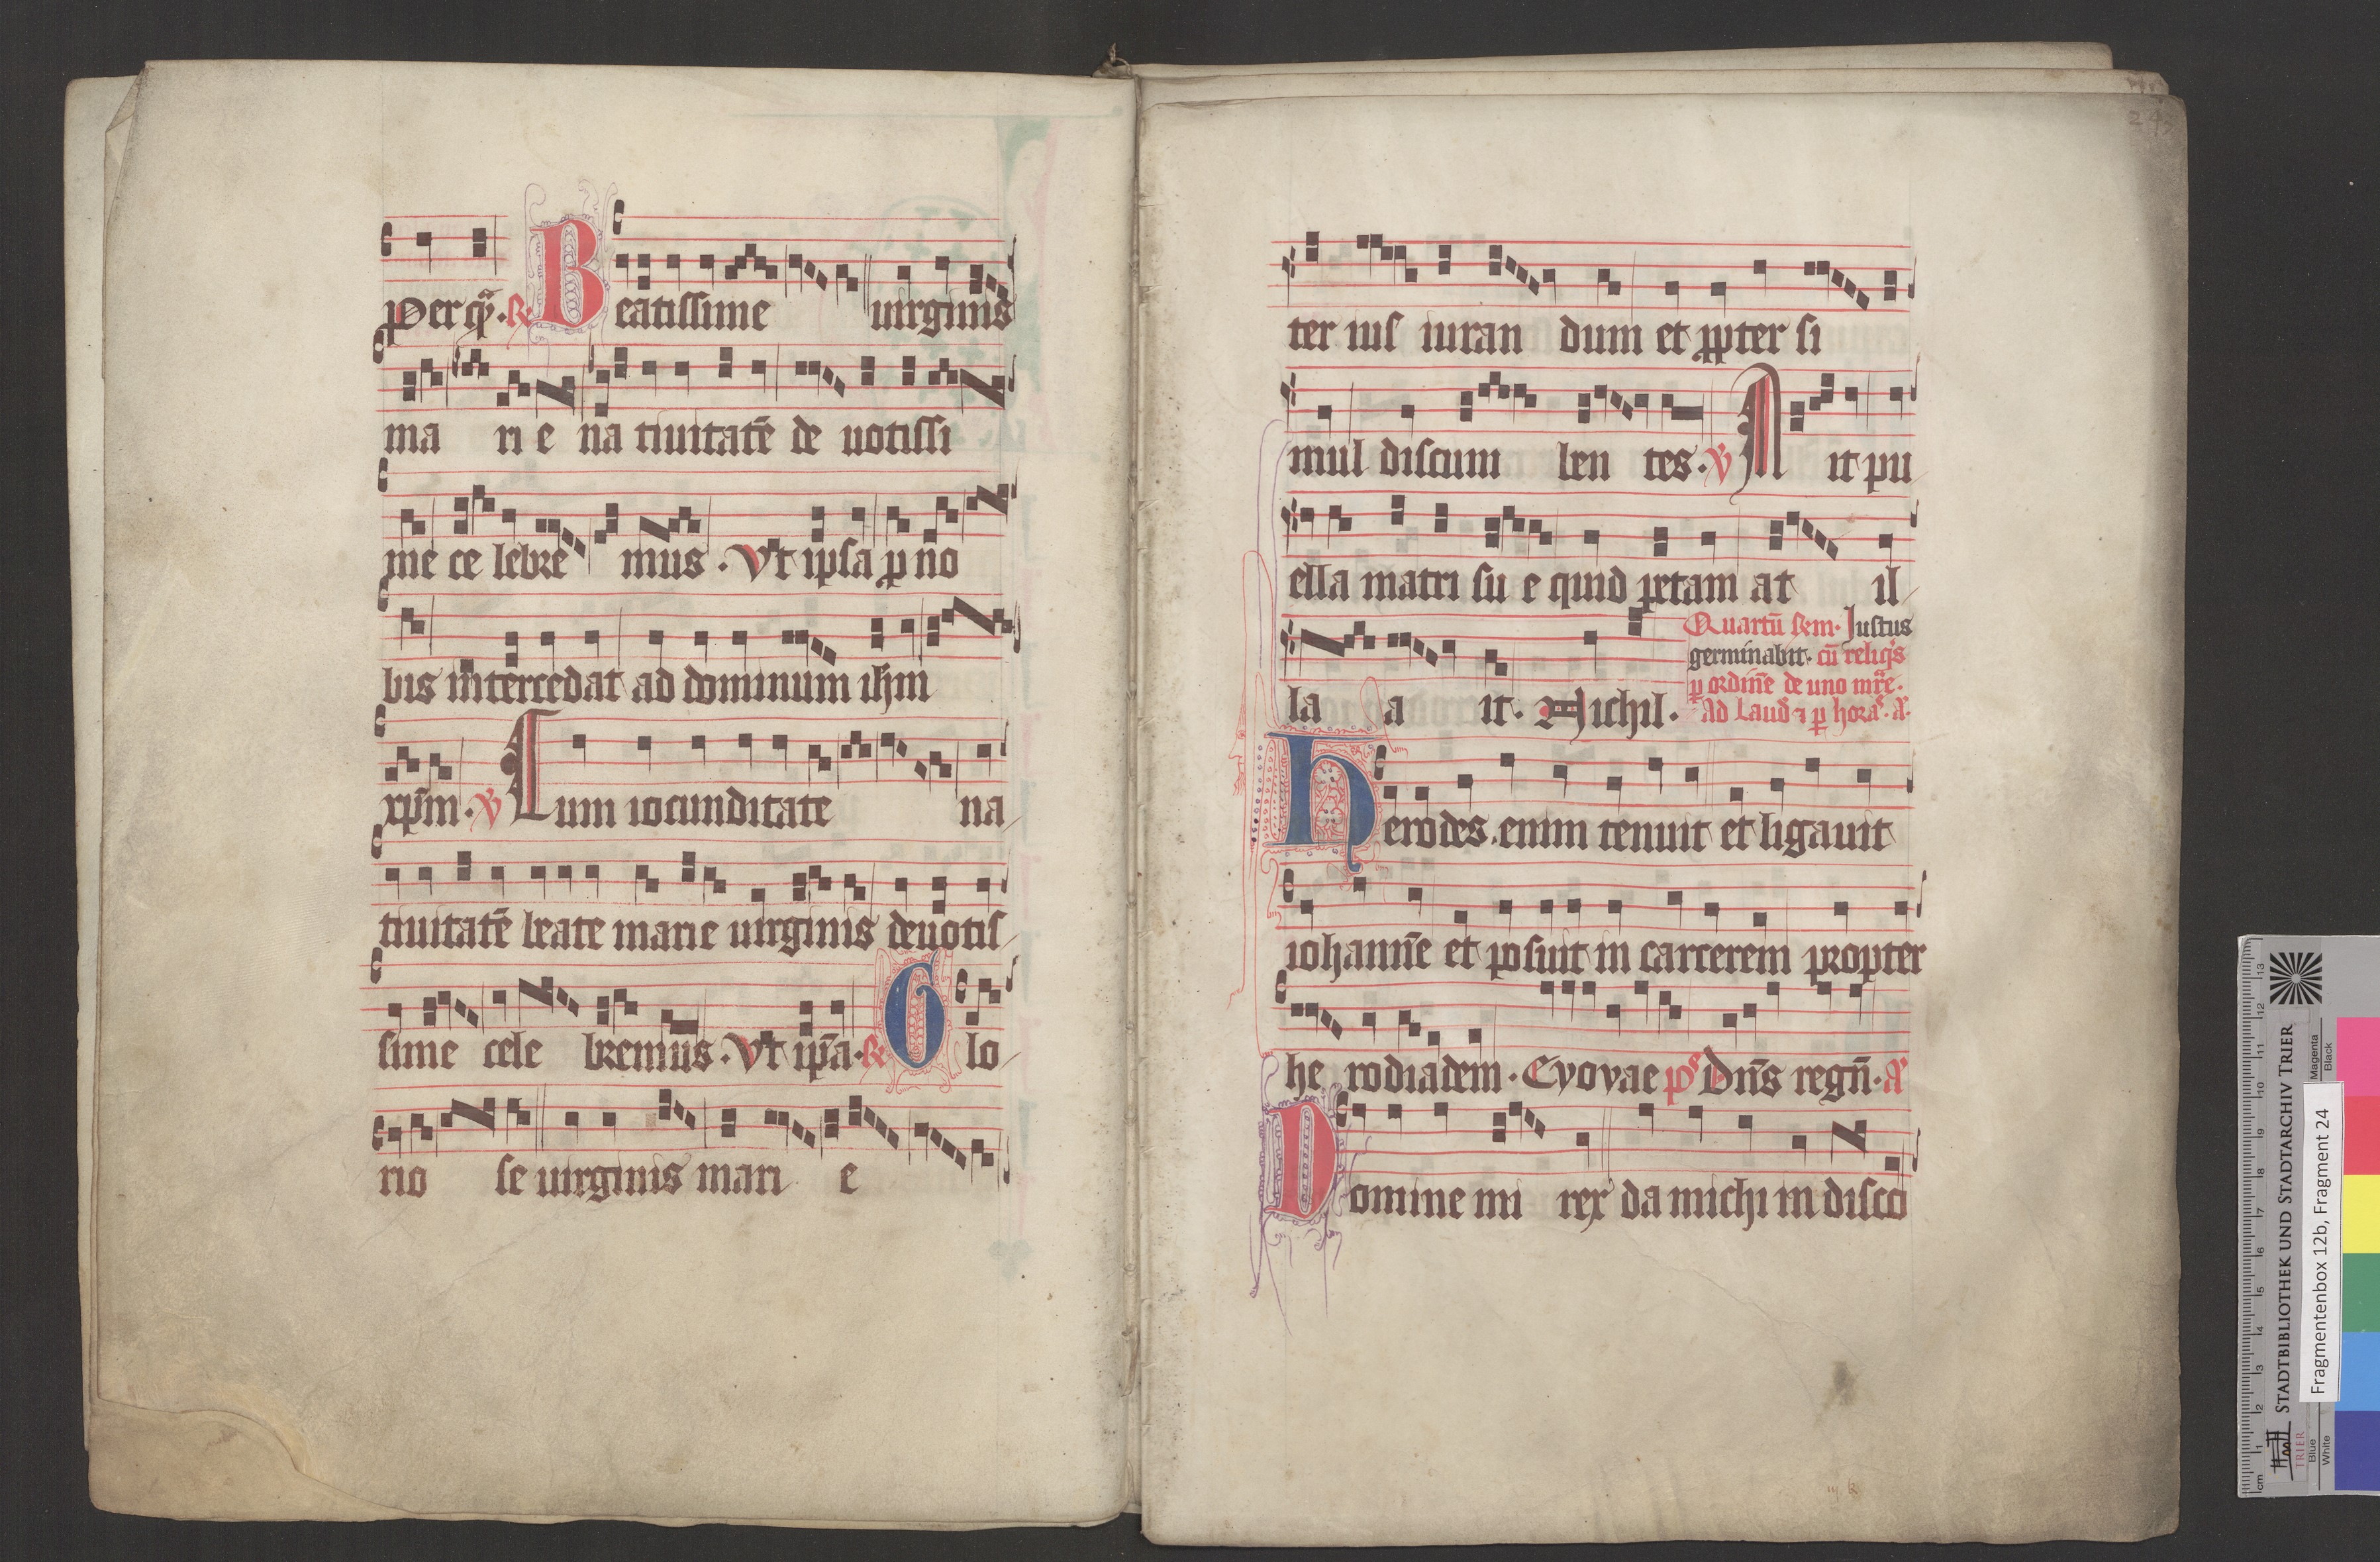 Per quã. R Beatissime uirginis
ma ri e na tiuitatē de uotissi
me ce lebre mus. Vt ipsa p no
bis intercedat ad dominum ihm
xpm. V Cum iocunditate na
tiuitatē beate marie uirginis deuotis
sime cele bremus. Vt ip̄a. R Glo
rio se uirginis mari e
ter ius iuran dum et ppter si
mul discum ben tes. V Ait pu
ella matri su e quid petam at il
la a it. Nichil.
Quartū Rem. Iustus
germinabit. cū reliqs
p ordinē de uno mr̄e.
Ad Laud̄ ⁊ p horas. A.
Herodes enim tenuit et ligauit
iohannē et posuit in carcerem propter
he rodiadem. Evovae ps Dns regn̄. A
Domine mi rex da michi in disco
STADTBIBLIOTHEK UND STADTARCHIV TRIER
Fragmentenbox 12b, Fragment 24
TRIER
cm 1 2 3 4 5 6 7 8 9 10 11 12 13
Blue
White
Magenta
Black